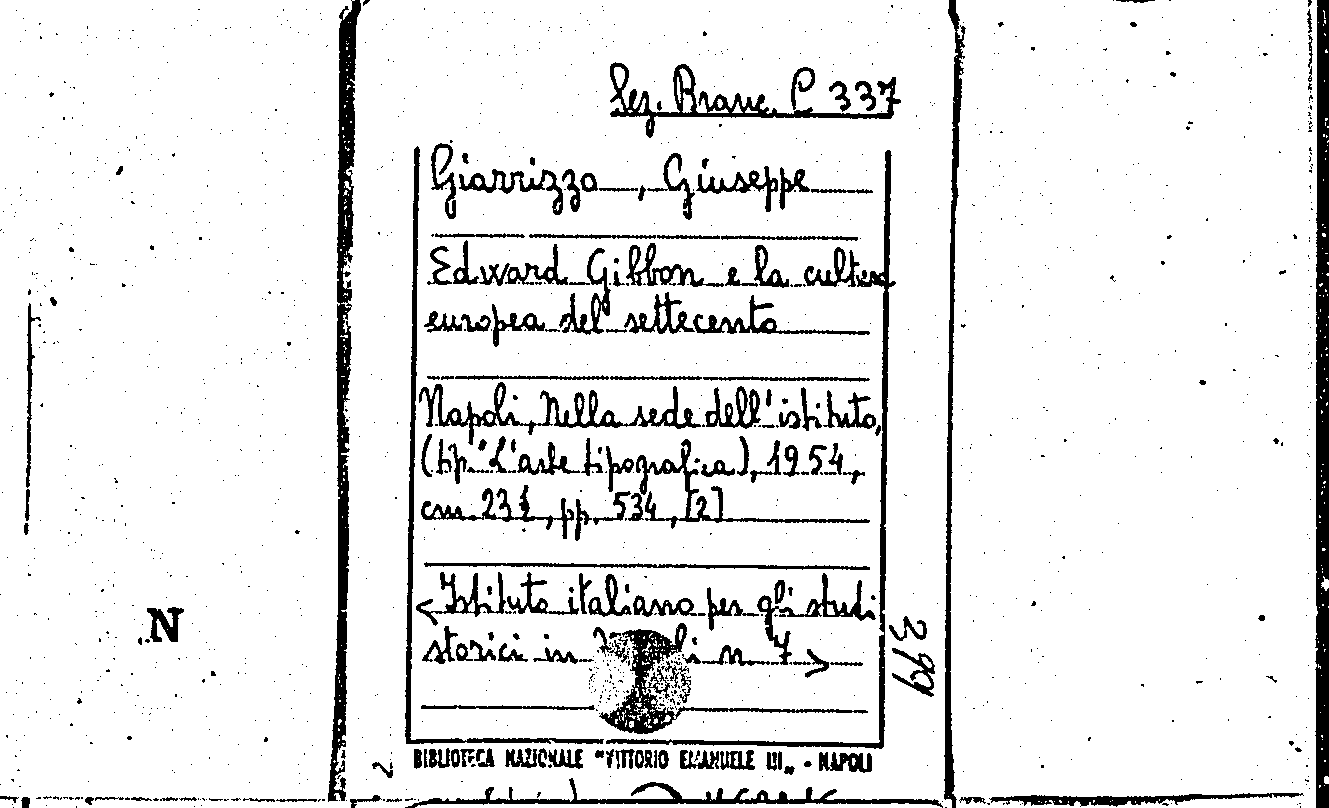 Sez. Branc. C 337
Giarrizzo, Giuseppe
Edward Gibbon e la cultura
europea del settecento
Napoli, Nella sede dell'istituto,
(tip. "L'arte tipografica), 1954,
cm. 23½, pp. 534, [2]
<Istituto italiano per gli studi
storici in n. 7>
399
N
2
BIBLIOTECA NAZIONALE "VITTORIO EMANUELE III„ - NAPOLI